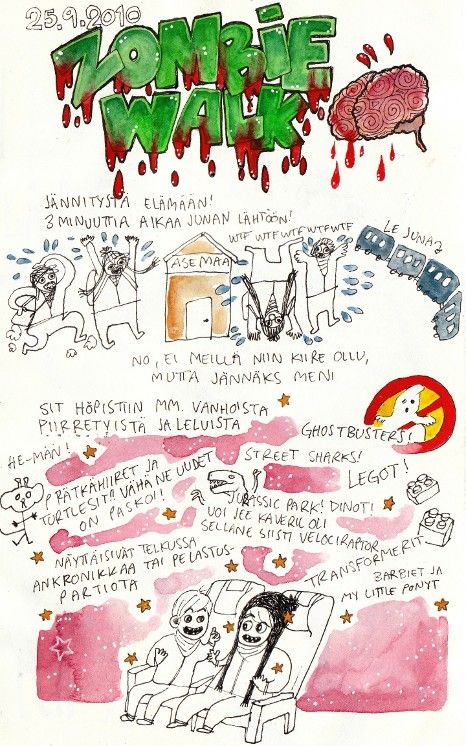 25.9.2010
ZOMBIE
WALK
JÄNNITYSTÄ ELÄMÄÄN!
3 MINUUTTIA AIKAA JUNAN LÄHTÖÖN!
ASEMA
WTF WTF WTF WTF WTF
LE JUNAZ
NO, EI MEILLÄ NIIN KIIRE OLLU,
MUTTA JÄNNÄKS MENI
SIT HÖPISTIIN MM. VANHOISTA
PIIRRETYISTÄ JA LELUISTA
GHOSTBUSTERS!
HE-MÄN!
STREET SHARKS!
LEGOT!
PRÄTKÄHIIRET JA
TURTLESIT! VÄHÄ NE UUDET
ON PASKOI!
JURASSIC PARK! DINOT!
VOI JEE KAVERIL OLI
SELLANE SIISTI VELOCIRAPTOR
NÄYTTÄISIVÄT TELKUSSA
ANKRONIKKAA TAI PELASTUS-
PARTIOTA
TRANSFORMERIT
BARBIET JA
MY LITTLE PONYT